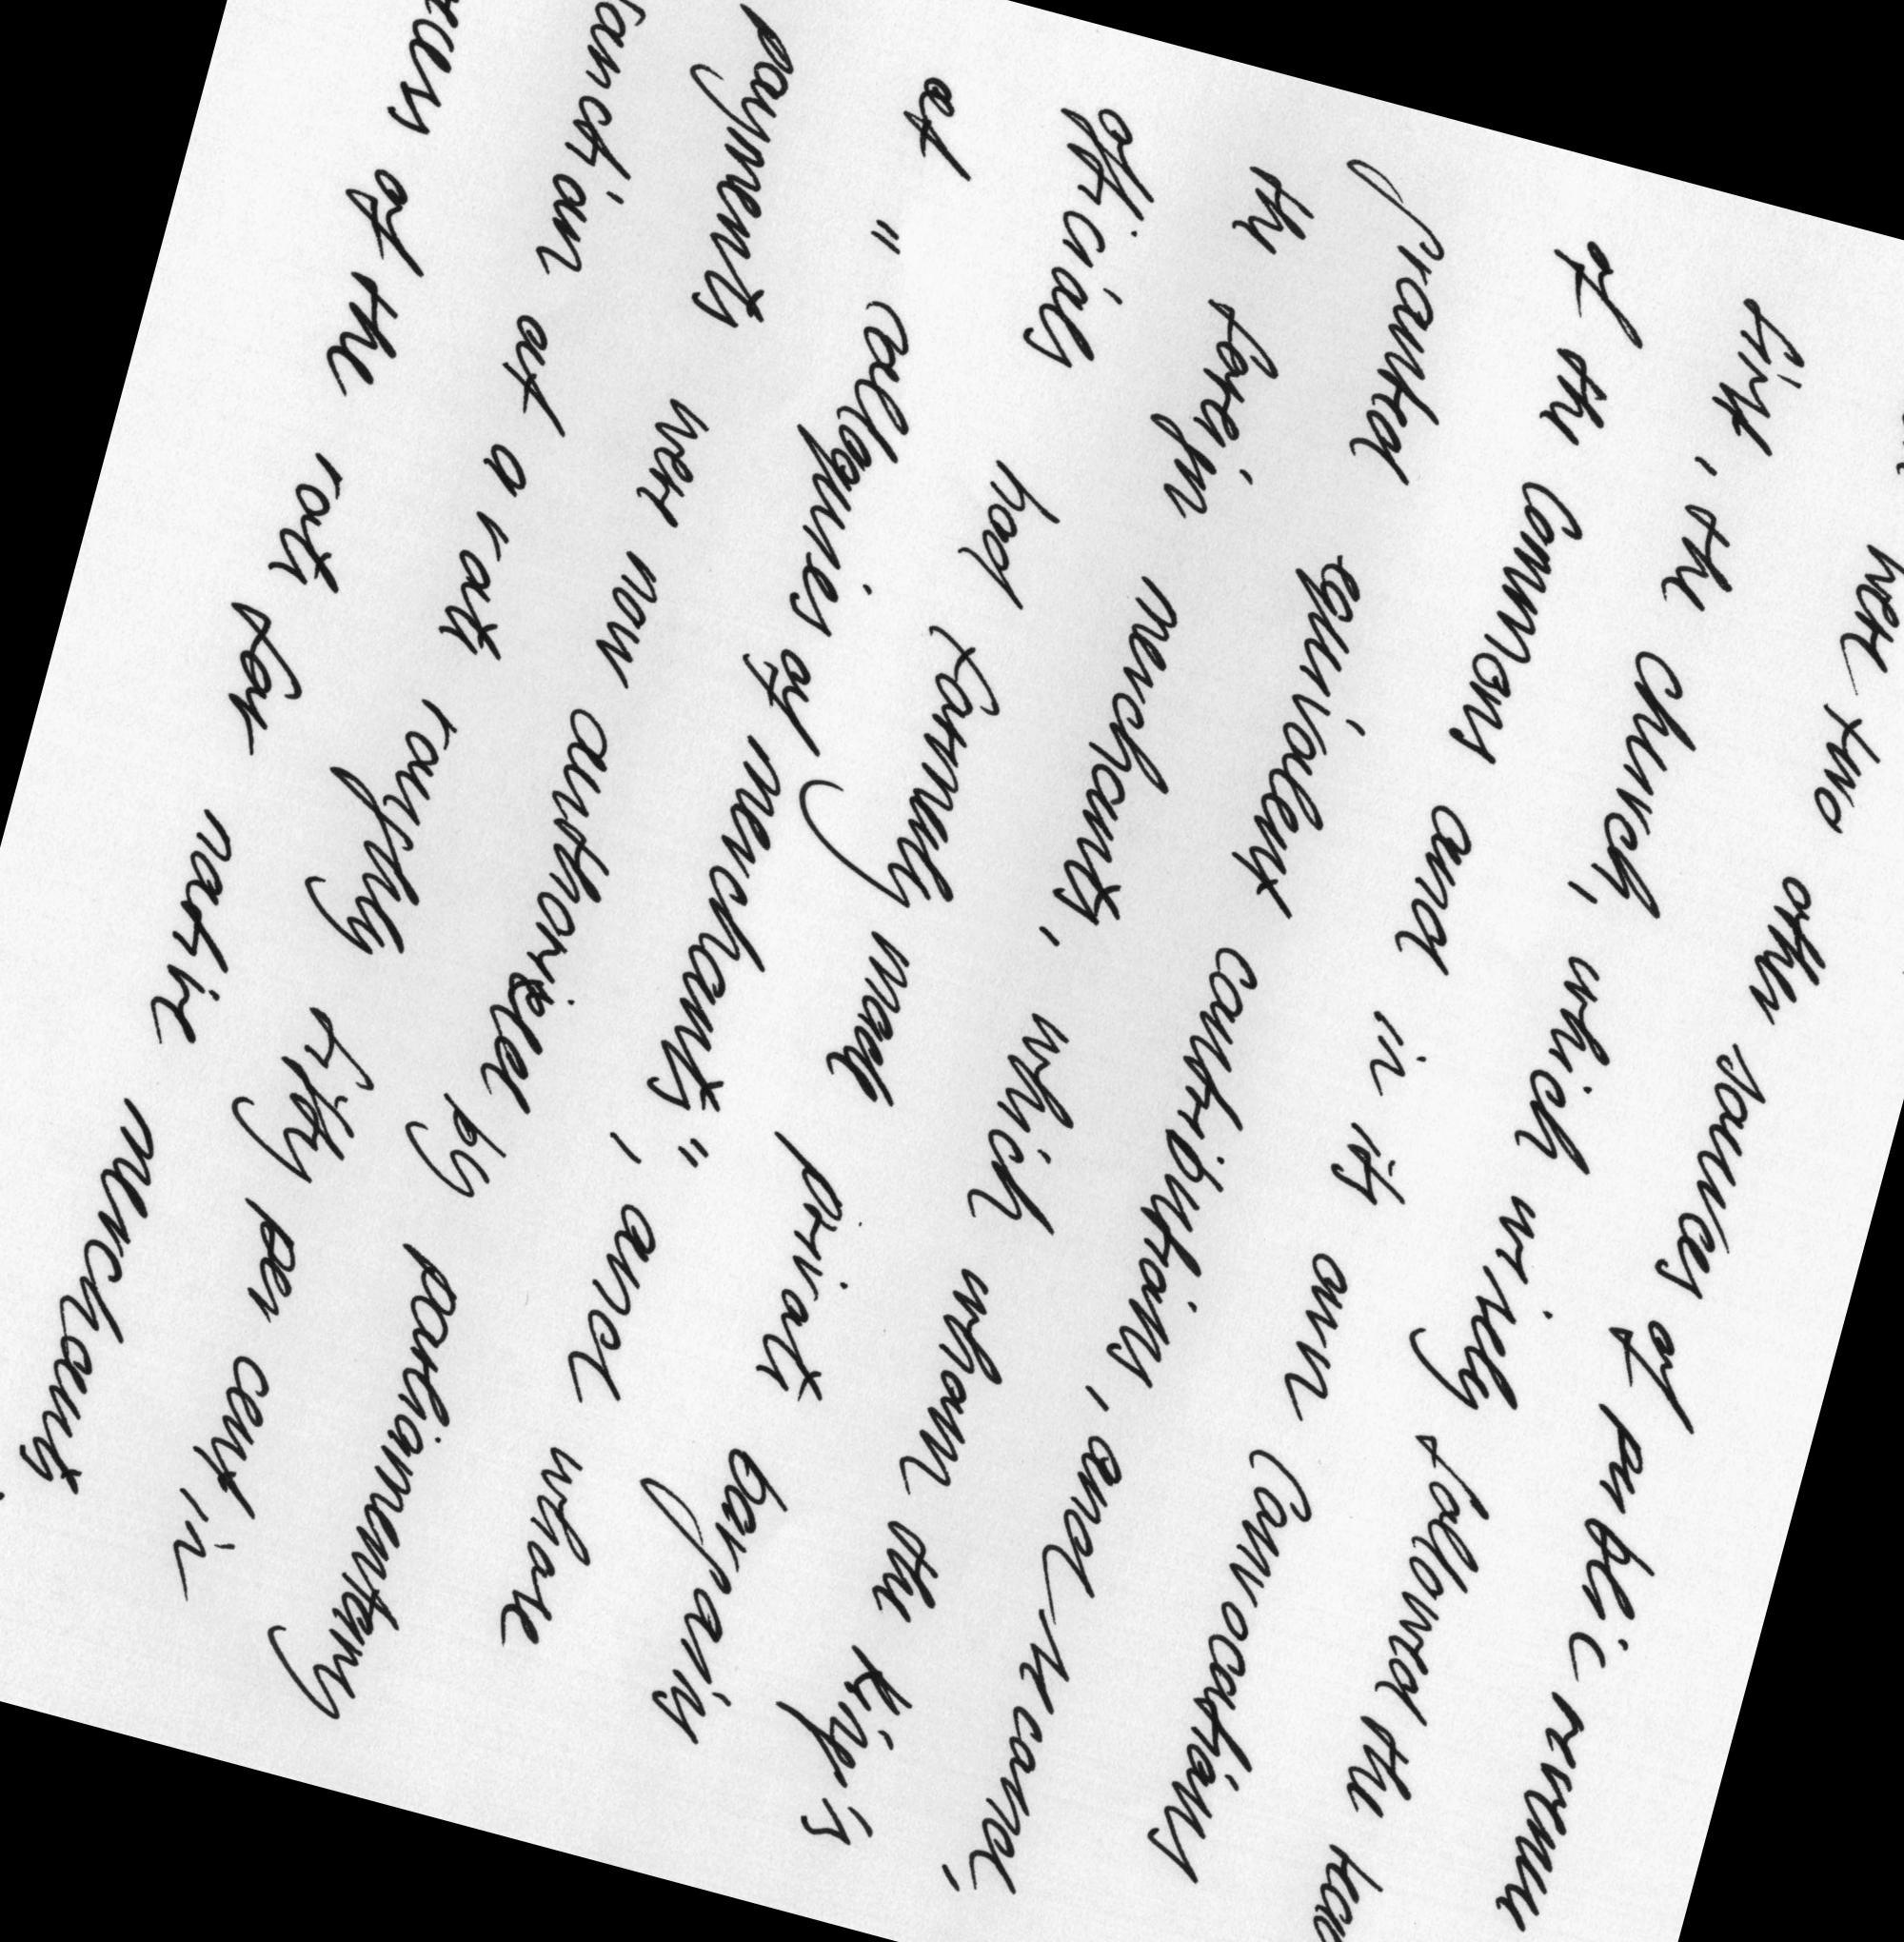 were two other sources of public revenue
first, the church, which wisely followed the lead
of the Commons and in its own Convocations
granted equivalent contributions, and second,
the foreign merchants, which whom the king's
officials had formerly made private bargains
at "colloquies of merchants", and whose
payments were now authorised by parliamentary
sanction at a rate roughly fifty per cent in
of the rate for native merchants